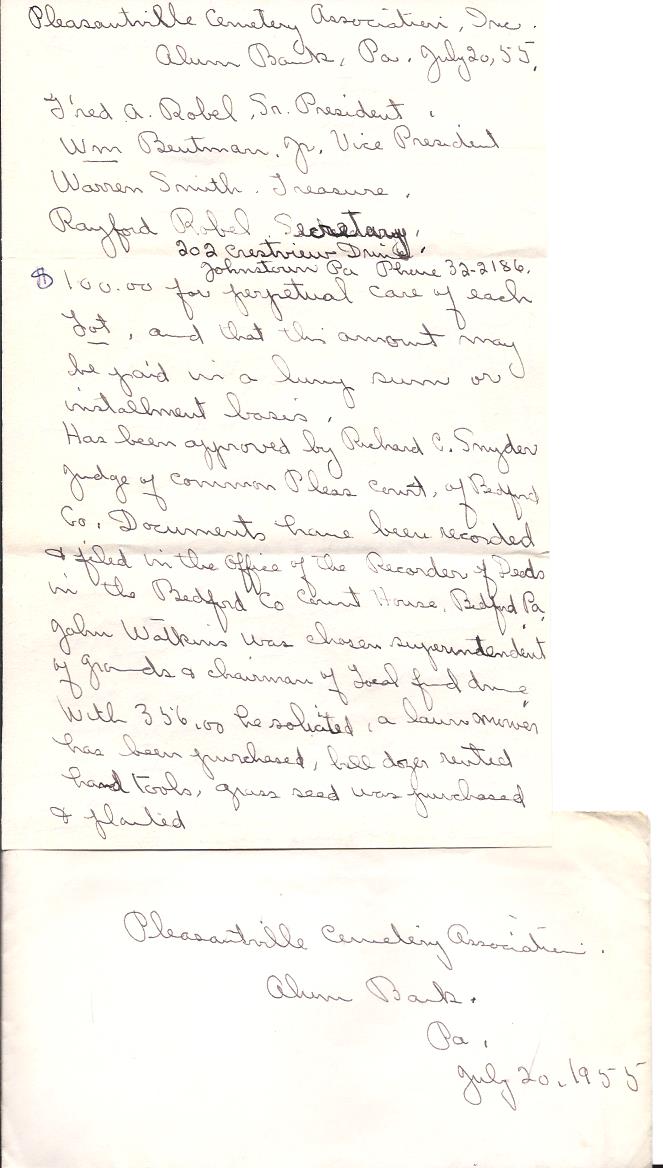 Pleasantville Cemetery Association, Inc.
Alum Bank, Pa. July 20, 55.
Fred A. Robel, Sr. President.
Wm Beutman, Jr, Vice President
Warren Smith. Treasure.
Rayford Robel Secretary.
202 Crestview Drive.
Johnstown Pa Phone 32-2186.
$100.00 for perpetual care of each
Lot, and that this amount may
be paid in a lump sum or
installment basis.
Has been approved by Richard C. Snyder
judge of common Pleas Court, of Bedford
Co. Documents have been recorded
& filed in the Office of the Recorder of Deeds
in the Bedford Co Court House, Bedford Pa.
John Watkins was chosen superintendent
of grounds & chairman of Local fund drive
With 356.00 he solicited, a lawn mower
has been purchased, bull dozer rented
hand tools, grass seed was purchased
& planted
Pleasantville Cemetery Association.
Alum Bank.
Pa.
July 20, 1955